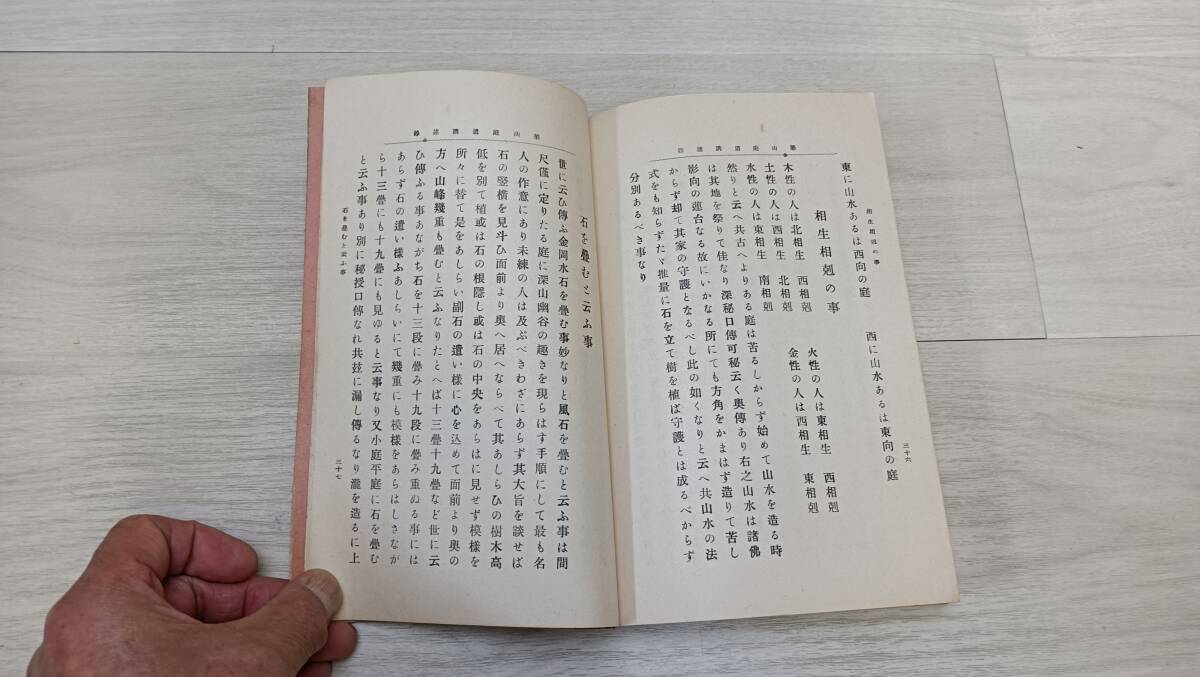 築山庭造傳
相生相剋の事
三十六
東に山水あるは西向の庭 西に山水あるは東向の庭
相生相剋の事
木性の人は北相生 西相剋 火性の人は東相生 西相剋
土性の人は西相生 北相剋 金性の人は西相生 東相剋
水性の人は東相生 南相剋
然りと云へ共古へよりある庭は苦るしからず始めて山水を造る時
は其地を祭りて佳なり深秘口傳可秘云く奥傳あり右之山水は諸佛
影向の蓮台なる故にいかなる所にても方角をかまはず造りて苦し
からず却て其家の守護となるべし此の如くなりと云へ共山水の法
式をも知らずたゞ推量に石を立て樹を植ば守護とは成るべからず
分別あるべき事なり
石を疊むと云ふ事
世に云ひ傳ふ金岡水石を疊む事妙なりと風石を疊むと云ふ事は間
尺僅に定りたる庭に深山幽谷の趣きを現らはす手順にして最も名
人の作意にあり未練の人は及ぶべきわざにあらず其大旨を談せば
石の竪横を見斗ひ面前より奥へ居へならべて其あしらひの樹木高
低を別て植或は石の根隱し或は石の中央をあらはに見せず模樣を
所々に替て是をあしらい副石の遣い樣に心を込めて面前より奥の
方へ山峰幾重も疊むと云ふなりたとへば十三疊十九疊など世に云
ひ傳ふる事あながち石を十三段に疊み十九段に疊み重ぬる事には
あらず石の遣い樣ふあしらいにて幾重にも模樣をあらはしさなが
ら十三疊にも十九疊にも見ゆると云事なり又小庭平庭に石を疊む
と云ふ事あり別に秘授口傳なれ共玆に漏し傳るなり瀧を造るに上
石を疊むと云ふ事
三十七